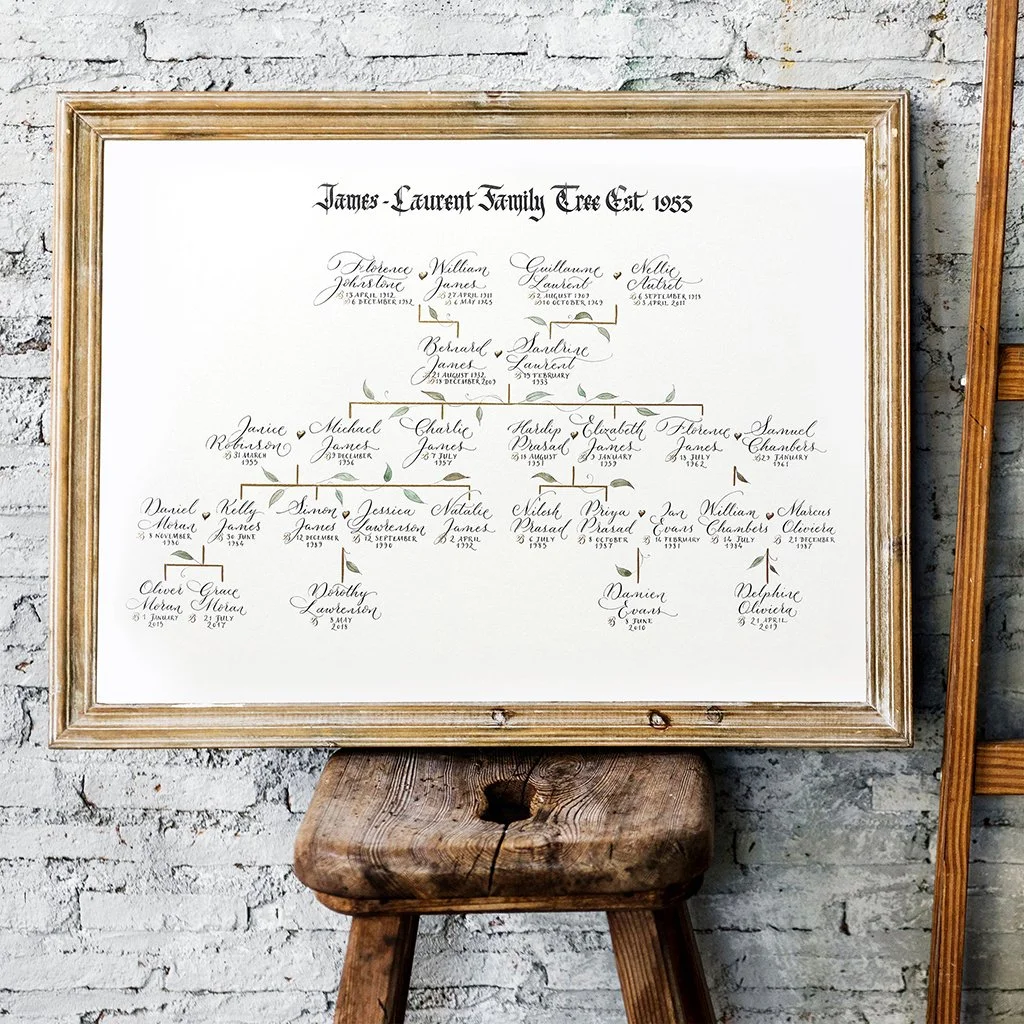 James-Laurent Family Tree Est. 1953
Florence William Guillaume Nellie
Johnstone James Laurent Autret
B 13 APRIL 1912 B 27 APRIL 1911 B 2 AUGUST 1909 B 6 SEPTEMBER 1913
D 6 DECEMBER 1992 D 6 MAY 1965 D 10 OCTOBER 1969 D 3 APRIL 2011
Bernard Sandrine
James Laurent
B 21 AUGUST 1932 B 19 FEBRUARY
D 13 DECEMBER 2009 1933
Janice Michael Charlie Hardip Elizabeth Florence Samuel
Robinson James James Prasad James James Chambers
B 31 MARCH B 9 DECEMBER B 7 JULY B 18 AUGUST B 3 JANUARY B 18 JULY B 29 JANUARY
1955 1956 1957 1951 1959 1962 1961
Daniel Kelly Simon Jessica Natalie Nilesh Priya Ian William Marcus
Moran James James Lawrenson James Prasad Prasad Evans Chambers Oliviera
B 8 NOVEMBER B 30 JUNE B 12 DECEMBER B 12 SEPTEMBER B 2 APRIL B 6 JULY B 8 OCTOBER B 14 FEBRUARY B 14 JULY B 21 DECEMBER
1980 1984 1989 1990 1992 1985 1987 1981 1984 1987
Oliver Grace Dorothy Damien Delphine
Moran Moran Lawrenson Evans Oliviera
B 1 JANUARY B 21 JULY B 8 MAY B 8 JUNE B 21 APRIL
2015 2017 2018 2010 2019